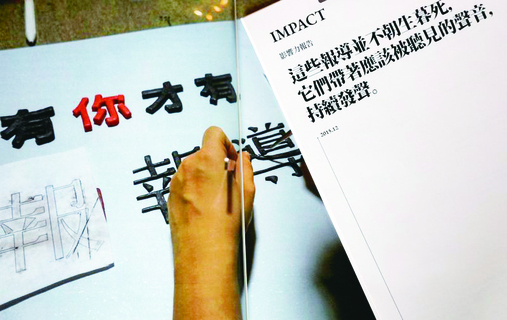 有你才有
報導
IMPACT
影響力報告
這些報導並不朝生暮死，
它們帶著應該被聽見的聲音，
持續發聲。
2015.12